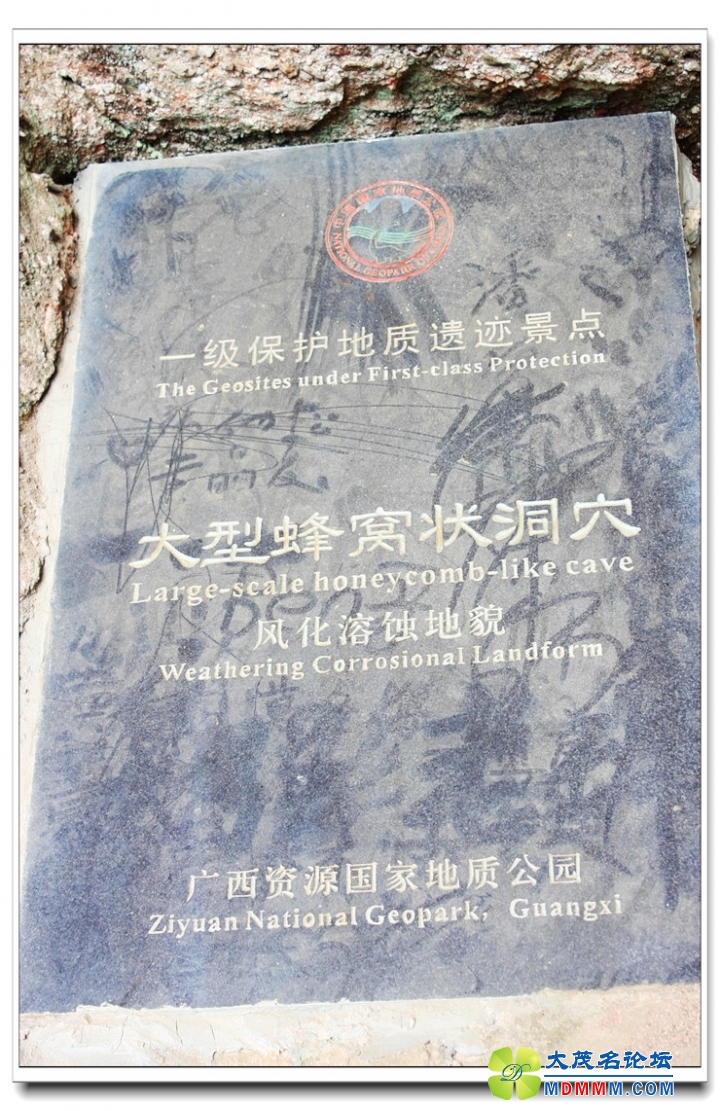 中国国家地质公园
NATIONAL GEOPARK OF CHINA
潘
一级保护地质遗迹景点
The Geosites under First-class Protection
大型蜂窝状洞穴
Large-scale honeycomb-like cave
风化溶蚀地貌
Weathering Corrosional Landform
广西资源国家地质公园
Ziyuan National Geopark, Guangxi
大茂名论坛
MDMMM.COM